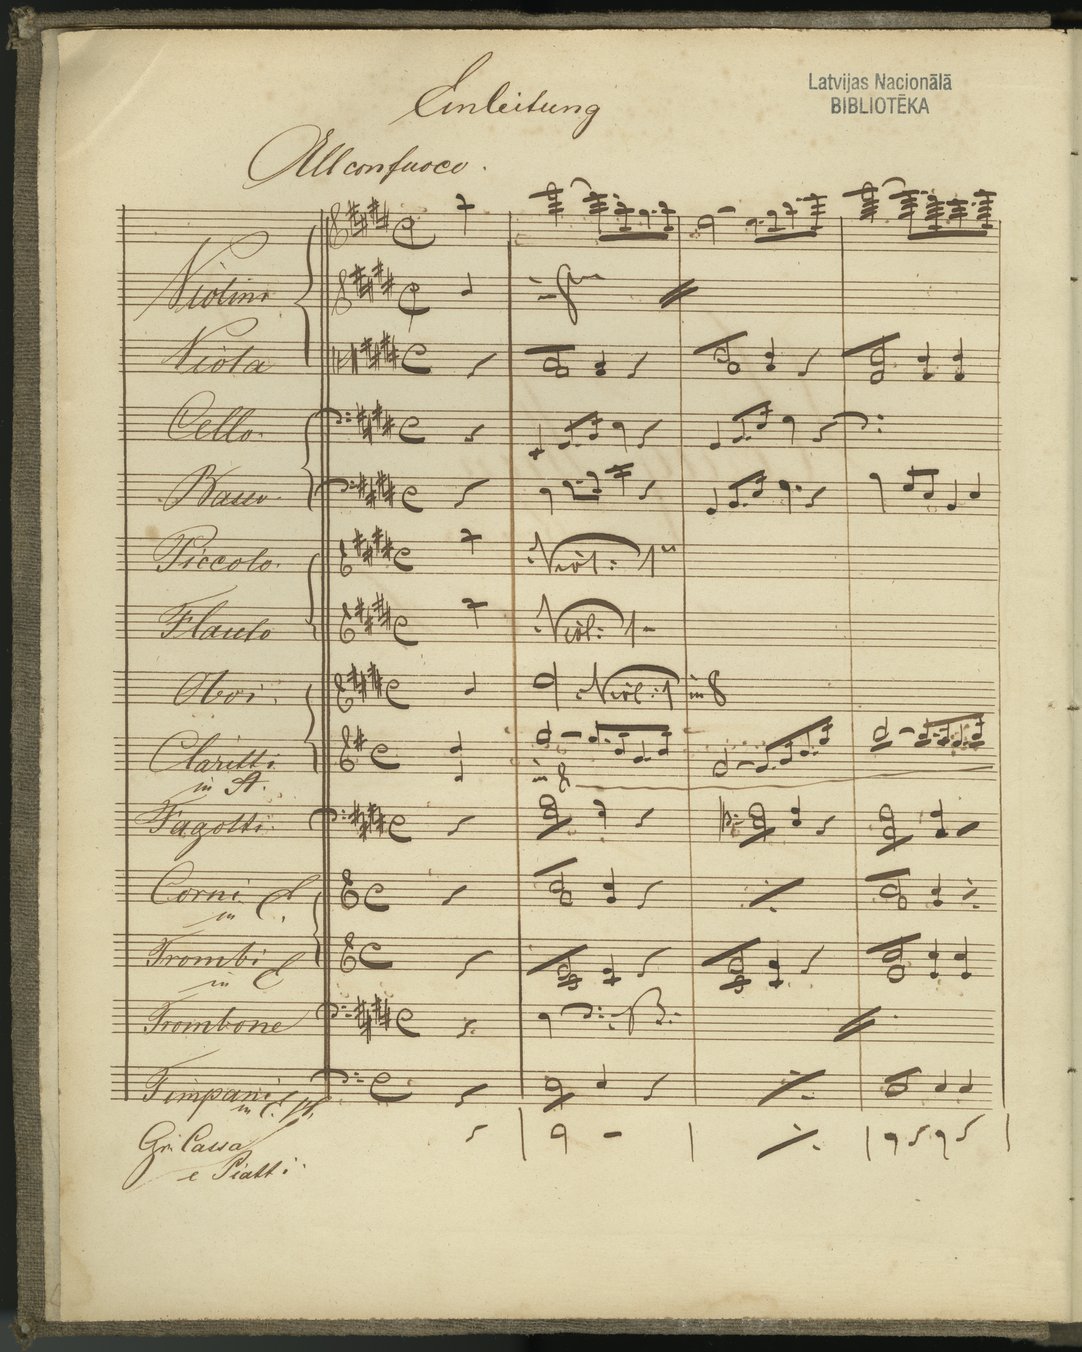 Einleitung
Latvijas Nacionālā
BIBLIOTĒKA
All con fuoco.
Violini
Viola
Cello.
Basso.
Piccolo.
Viol: 1mo
Flauto
Viol: 1
Oboi.
Viol: 1 in 8
Claritti
in A.
in 8
Fagotti.
Corni
in E.
Trombi
in E
Trombone
B.
Timpani
in E. H.
Gr. Cassa
e Piatti.